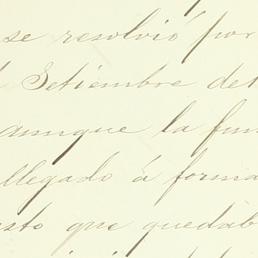 se resolvió por
Setiembre del
aunque la fun
llegado á forma
sto que quedab